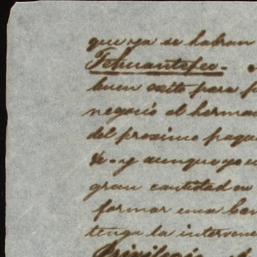 que ya se habran
Tehuantepec.
buen exito para p
negocio al herma
del proximo paque
&. y aunque yo
gran cantidad
formar una
tenga la interven
Privilegio